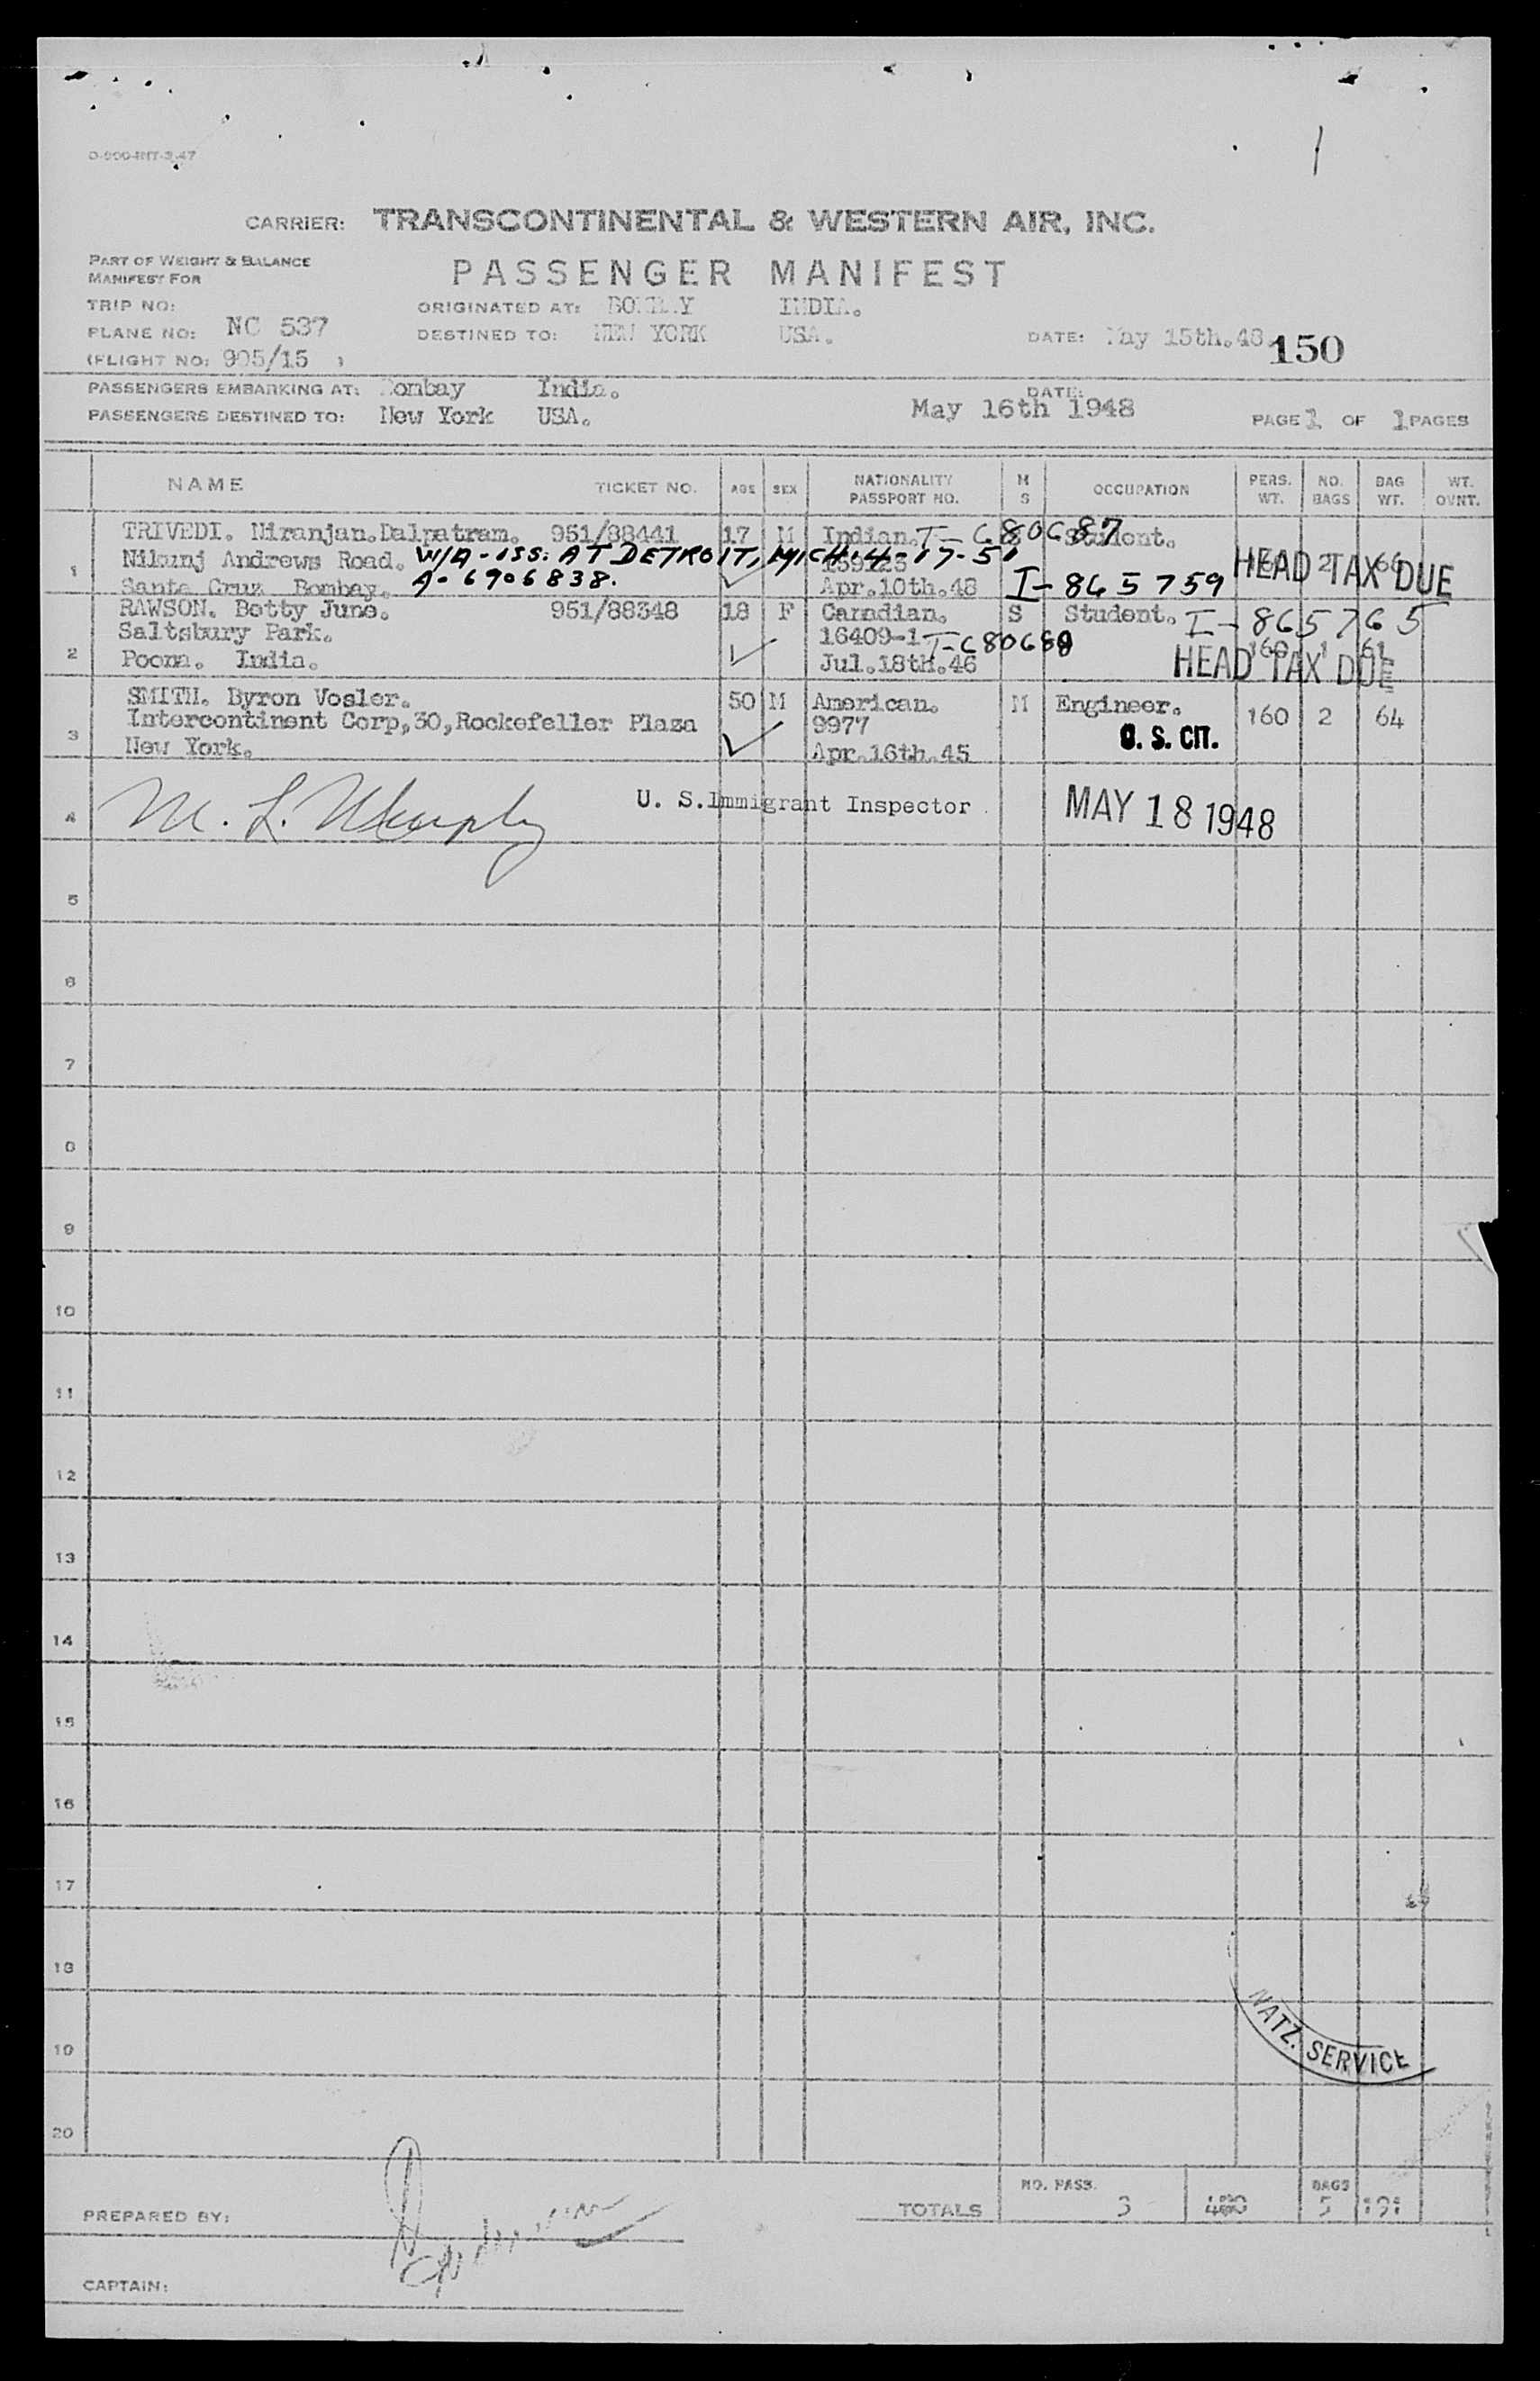 CARRIER: TRANSCONTINENTAL & WESTERN AIR, INC.
PART OF WEIGHT & BALANCE
MANIFEST FOR
PASSENGER MANIFEST
TRIP NO:
ORIGINATED AT: BOMBAY INDIA.
PLANE NO: NC 537
DESTINED TO: NEW YORK USA.
DATE: May 15th.48.
150
(FLIGHT NO: 905/15 )
PASSENGERS EMBARKING AT: Bombay India.
DATE:
PASSENGERS DESTINED TO: New York USA.
May 16th 1948
PAGE 1 OF 1 PAGES
NAME TICKET NO. AGE SEX NATIONALITY PASSPORT NO. M S OCCUPATION PERS. WT. NO. BAGS BAG WT. WT. OVNT.
TRIVEDI. Niranjan.Dalpatram. 951/88441 17 M Indian. T-680687 Student.
Nikunj Andrews Road. W/A-ISS. AT DETROIT, MICH. 4-17-51
1 Santa Cruz Bombay. A-6906838. Apr.10th.48 I-865759 HEAD TAX DUE
RAWSON. Betty June. 951/88348 18 F Canadian. S Student. I-865765
Saltsbury Park. 16409-1 T-680688
2 Poona. India. Jul.18th.46 160 1 61 HEAD TAX DUE
SMITH. Byron Vosler. 50 M American. M Engineer.
Intercontinent Corp,30,Rockefeller Plaza 9977 160 2 64
3 New York. Apr.16th.45 U. S. CIT.
4 M. L. Murphy U. S. Immigrant Inspector MAY 18 1948
5
6
7
8
9
10
11
12
13
14
15
16
17
18
19
NATZ. SERVICE
20
NO. PASS. BAGS
TOTALS 3 480 5 191
PREPARED BY:
CAPTAIN: